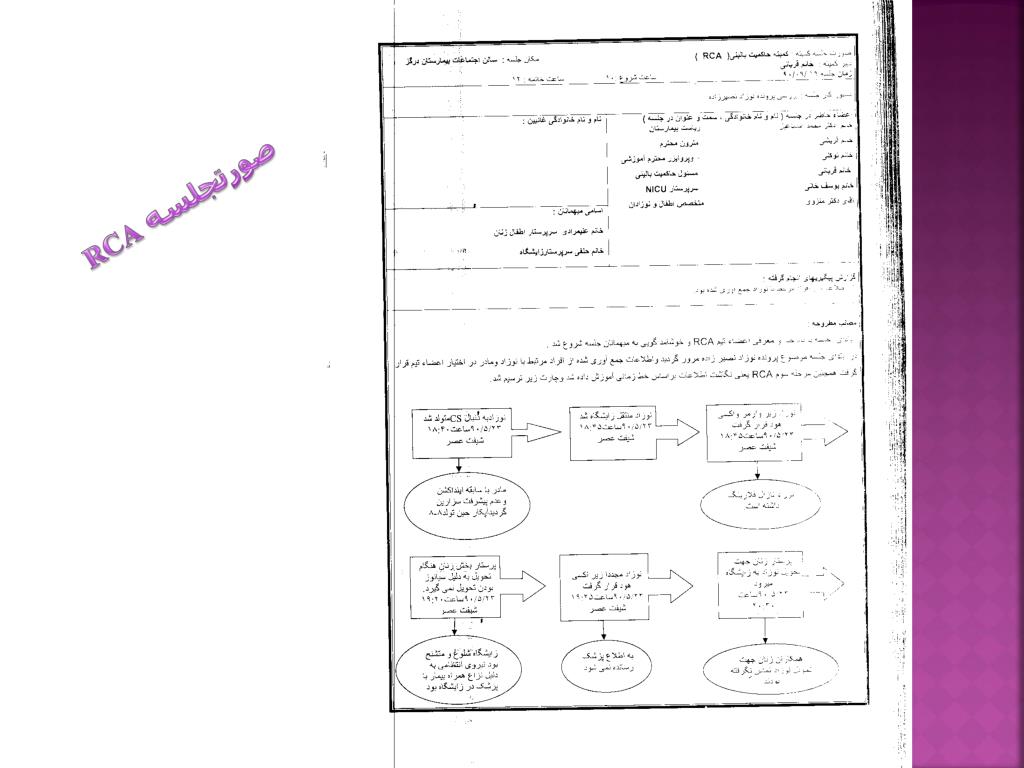 صورتجلسه RCA
صورت جلسه کمیته : کمیته حاکمیت بالینی( RCA )
مکان جلسه : سالن اجتماعات بیمارستان درگز
دبیر کمیته : خانم قربانی
زمان جلسه
ساعت شروع ۱۰
ساعت خاتمه : ۱۲
پرونده نوزاد نصیرزاده
اعضاء حاضر در جلسه ( نام و نام خانوادگی ، سمت و عنوان در جلسه )
نام و نام خانوادگی غائبین :
دکتر محمد
ریاست بیمارستان
مترون محترم
خانم توکلی
سوپروایزر محترم آموزشی
خانم قربانی
مسئول حاکمیت بالینی
خانم یوسف خانی
سرپرستار NICU
آقای دکتر منزوی
متخصص اطفال و نوزادان
اسامی میهمانان :
خانم علیمرادی سرپرستار اطفال زنان
خانم حنفی سرپرستارزایشگاه
گزارش پیگیریهای انجام گرفته :
نوزاد جمع آوری شده بود.
مطالب مطروحه :
و معرفی اعضاء تیم RCA و خوشامد گویی به میهمانان جلسه شروع شد .
در ابتدای جلسه موضوع پرونده نوزاد نصیر زاده مرور گردید واطلاعات جمع آوری شده از افراد مرتبط با نوزاد ومادر در اختیار اعضاء تیم قرار
گرفت همچنین مرحله سوم RCA یعنی نگاشت اطلاعات براساس خط زمانی آموزش داده شد وچارت زیر ترسیم شد.
نوزادبه دنبال CSمتولد شد
۹۰/۵/۲۳ساعت۱۸:۴۰
شیفت عصر
نوزاد منتقل زایشگاه شد
۹۰/۵/۲۳ساعت۱۸:۴۵
شیفت عصر
نوزاد زیر وارمر واکسی
هود قرار گرفت
۹۰/۵/۲۳ساعت۱۸:۴۵
شیفت عصر
مادر با سابقه اینداکشن
وعدم پیشرفت سزارین
گردیدآپگار حین تولد۸-۸
نازال فلارینگ
داشته است.
پرستار بخش زنان هنگام
تحویل به دلیل سیانوز
بودن تحویل نمی گیرد.
۹۰/۵/۲۳ساعت۱۹:۲۰
شیفت عصر
نوزاد مجددا زیر اکسی
هود قرار گرفت
۹۰/۵/۲۳ساعت۱۹:۲۵
شیفت عصر
پرستار زنان جهت
تحویل نوزاد به زایشگاه
میرود
۹۰/۵/۲۳ساعت
۲۰:۳۰
زایشگاه شلوغ و متشنج
بود نیروی انتظامی به
دلیل نزاع همراه بیمار با
پزشک در زایشگاه بود
به اطلاع پزشک
رسانده نمی شود
همکاران زنان جهت
تحویل نوزاد تماس نگرفته
بودند